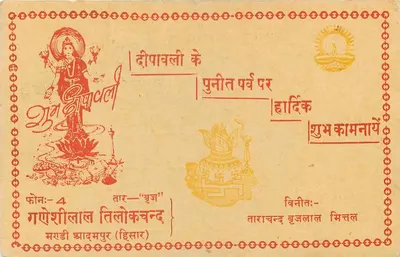 शुभ दीपावली
दीपावली के
पुनीत पर्व पर
हार्दिक
शुभ कामनायें
फोन:- 4 तार-"बृज"
गणेशीलाल तिलोकचन्द
मण्डी आदमपुर (हिसार)
विनीत:-
ताराचन्द बृजलाल मित्तल